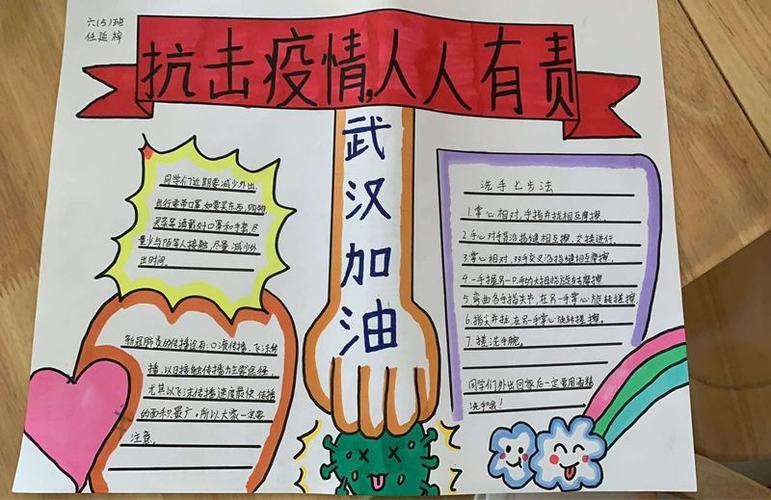 六(5)班
任延梓
抗击疫情,人人有责
武汉加油
同学们近期要减少外出,
出行要带口罩,如需买东西、购物
买菜等,请戴好口罩和手套,尽
量少与陌生人接触,尽量减少外
出时间。
新冠肺炎的传播途有:口液传播、飞沫传
播,以及接触传播为主要途径,
尤其以飞沫传播速度最快,传播
的面积最广,所以大家一定要
注意。
洗手七步法
1.掌心相对,手指并拢相互摩擦。
2.手心对手背沿指缝相互摩擦,交换进行。
3.掌心相对,双手交叉沿指缝相互摩擦。
4.一手握另一只手的大拇指旋转摩擦
5.弯曲各手指关节,在另一手掌心旋转搓擦
6.指尖并拢,在另一手掌心旋转搓擦。
7.搓洗手腕。
同学们外出回家后一定要用
洗手哦!